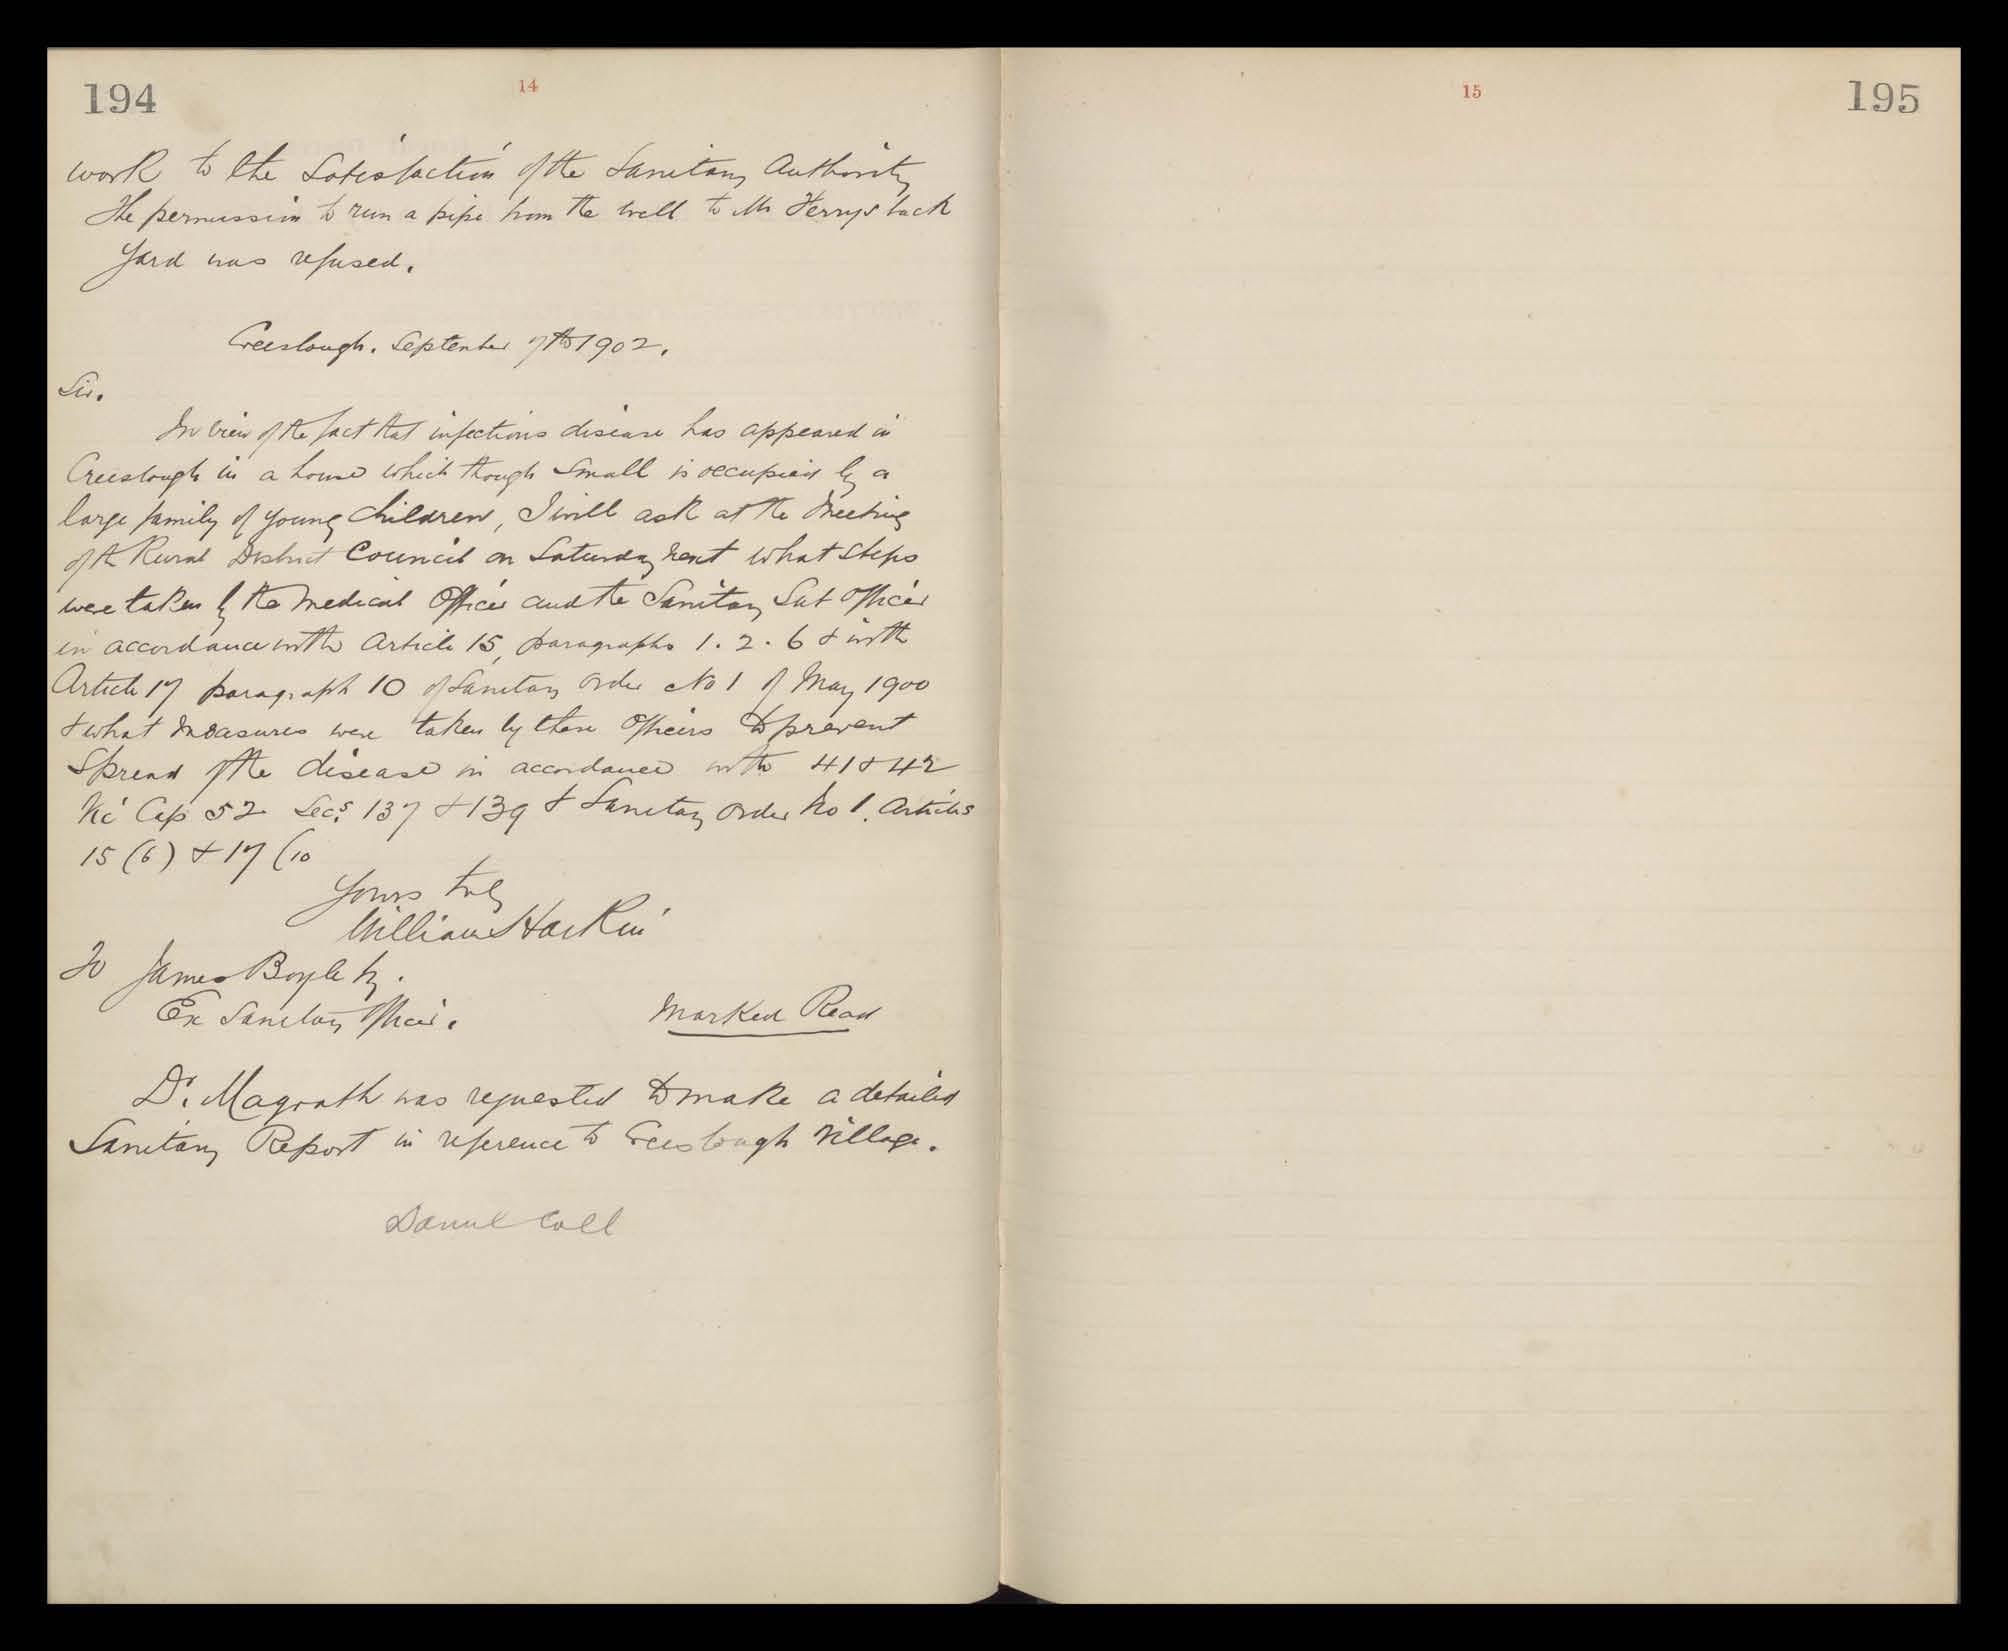 194
14
work to the Satisfaction of the Sanitary Authority
The permission to run a pipe from the well to Mr Ferrys back
Yard was refused.
Creeslough. September 7th 1902.
Sir.
In view of the fact that infectious disease has appeared in
Creeslough in a house which though small is occupied by a
large family of young children, I will ask at the Meeting
of the Rural District Council on Saturday next what steps
were taken by the Medical Officer and the Sanitary Sub Officer
in accordance with Article 15, paragraphs 1. 2. 6 & with
Article 17 paragraph 10 of Sanitary Order No 1 of May 1900
& what measures were taken by these Officers to prevent
Spread of the disease in accordance with 41 & 42
Vic Cap 52 Secs. 137 & 139 & Sanitary Order No 1. Articles
15 (6) & 17 (10
Yours truly
William Harkin
To James Boyle
Ex Sanitary Officer.
Marked Read
Dr. Magrath was requested to make a detailed
Sanitary Report in reference to Creeslough Village.
Daniel Coll
15
195